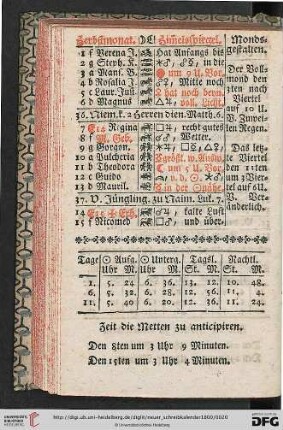 Herbstmonat. Himelsspiegel. Monds-
1 f Verena J. Hat Anfangs bis gestalten.
2 g Steph. K. in die
3 a Mans. B. um 9 U. Vor. Der Voll-
4 b Rosalia J. Mitte noch mond den
5 c Laur. Just. hat noch bevn. 3ten nach
6 d Magnus voll. Licht. Viertel
36. Niem. k. 2 Herren dien. Matth. 6. auf 10 U.
V. Zuwei-
7 Regina recht gutes len Regen.
8 f M. Geb. Wetter.
9 g Gorgon. Das letz-
10 a Pulcheria te Viertel
11 b Theodora um 5 U. Vor. den 11den
12 c Guido v. d. um Vier-
13 d Mauril. in der tel auf 6U.
37. V. Jüngling. zu Naim. Luk. 7. V. Ver-
änderlich.
14 Erh. kalte Luft
15 f Nicomed und, über-
Tage Aufg. Unterg. Tagsl. Nachtl.
Uhr M. Uhr M. St. M. St. M.
1. 5. 24. 6. 36. 13. 12. 10. 48.
6. 5. 32. 6. 28. 12. 56. 11. 4.
11. 5. 40. 6. 20. 12. 36. 11. 24.
Zeit die Metten zu anticipiren.
Den 8ten um 3 Uhr 9 Minuten.
Den 15ten um 3 Uhr 4 Minuten.
UNIVERSITÄTS-
BIBLIOTHEK
HEIDELBERG
http://digi.ub.uni-heidelberg.de/diglit/neuer_schreibkalender1800/0020
© Universitätsbibliothek Heidelberg
gefördert durch die
DFG